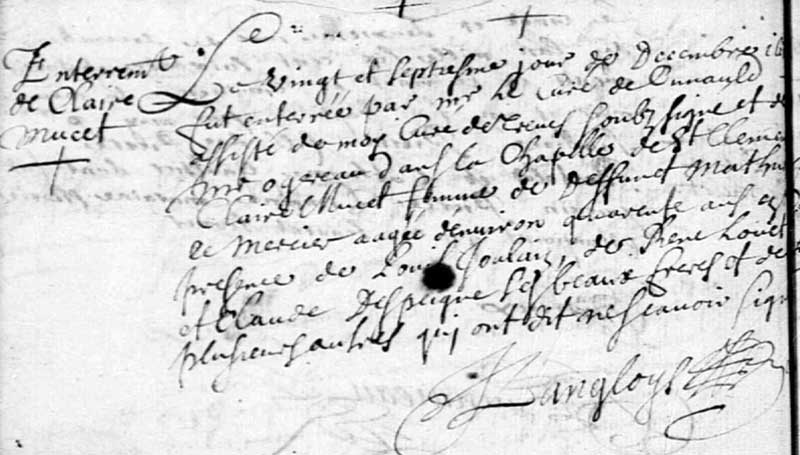 Enterremt
de Claire
Mucet
Le vingt et septiesme jour de Decembre 16
fut enterrée par mr le Curé de Cunauld
assisté de moy Curé de Treves soubz signé et de
mr ogereau dans la Chapelle de St Clement
Claire Mucet femme de deffunct Mathu
le Mercier aagée d'environ quarente ans en
presence de Louis Joulain, de Rene Louet
et Claude Despeigne ses beaux freres et de
plusieurs autres quj ont dit ne scavoir sign
Langloys